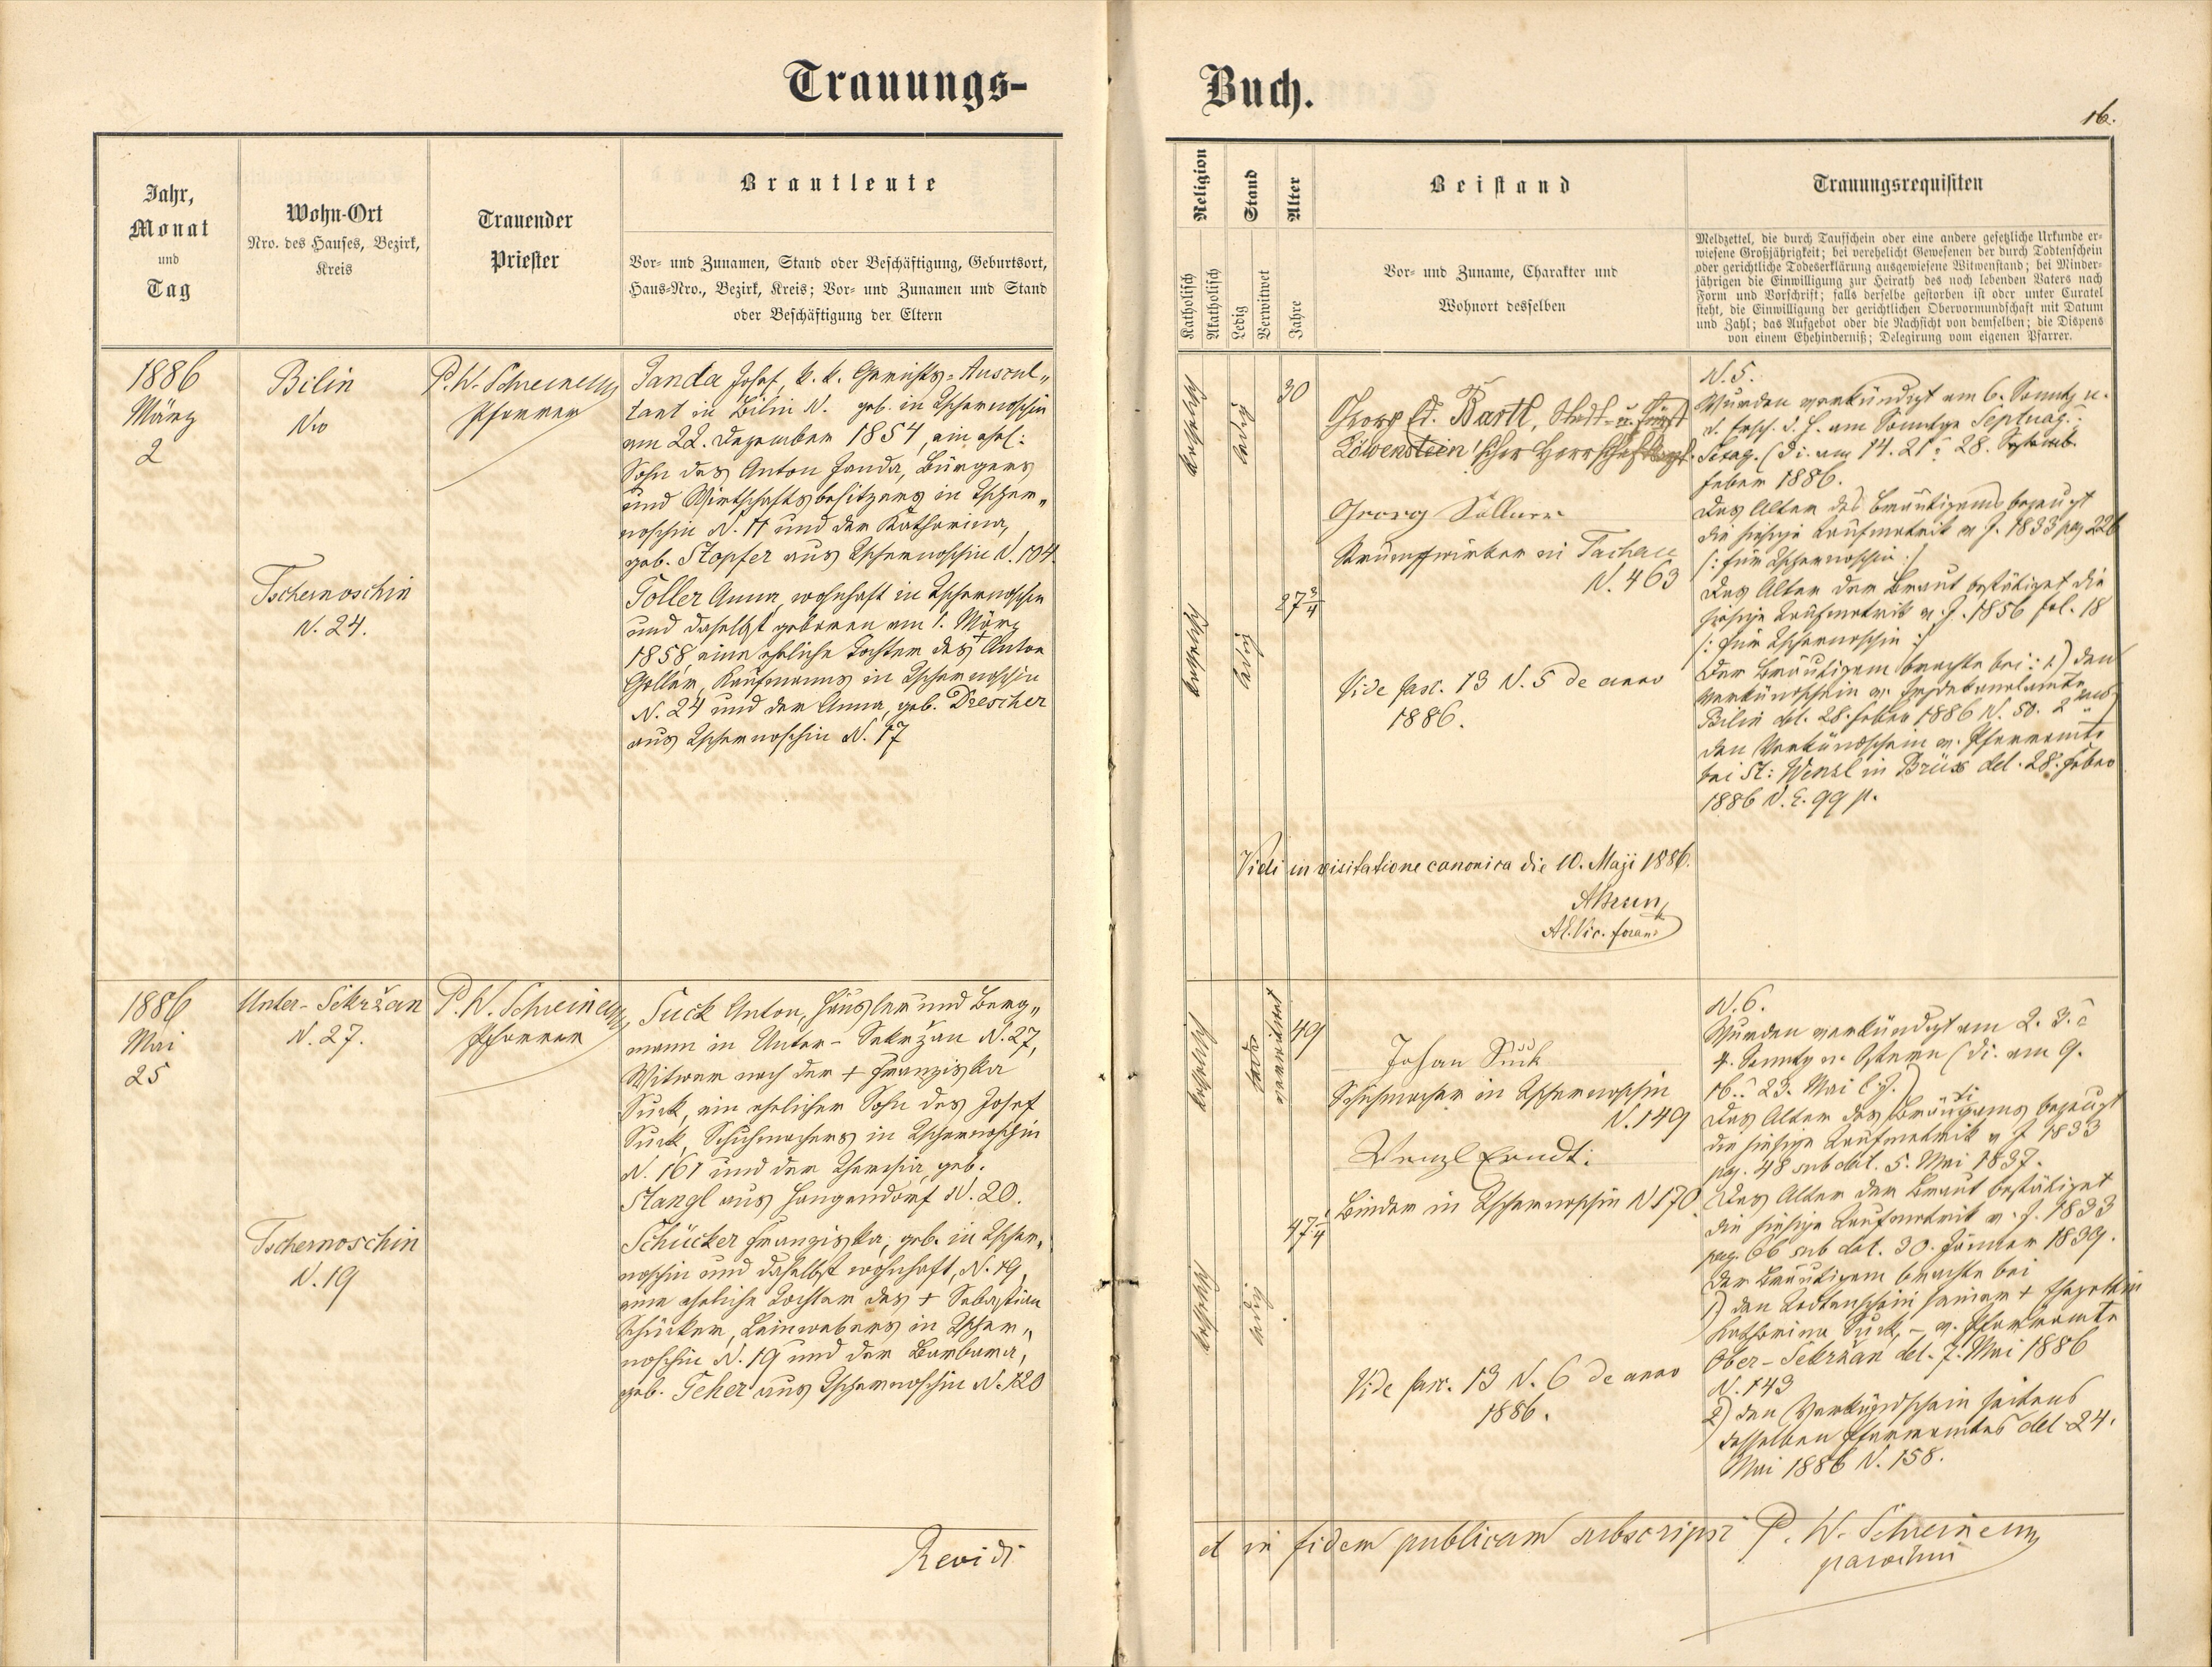 Trauungs-
Jahr,
Monat
und
Tag
Wohn-Ort
Nro. des Hauses, Bezirk,
Kreis
Trauender
Priester
Brautleute
Vor- und Zunamen, Stand oder Beschäftigung, Geburtsort,
Haus-Nro., Bezirk, Kreis; Vor- und Zunamen und Stand
oder Beschäftigung der Eltern
1886
März
2
Bilin
Nro
P. W. Schreiner
Pfarrer
Janda Josef, k. k. Gerichts-Auscul„
tant in Bilin N. geb. in Tschernoschin
am 22. Dezember 1854, ein ehel:
Sohn des Anton Janda, Bürgers
und Wirtschaftsbesitzers in Tscher„
noschin N. 11 und der Katharina,
geb. Stopfer aus Tschernoschin N. 104.
Tschernoschin
N. 24.
Toller Anna, wohnhaft in Tschernoschin
und daselbst geboren am 1. März
1858, eine eheliche Tochter des + Anton
Goller, Kaufmanns in Tschernoschin
N. 24 und der Anna, geb. Drescher
aus Tschernoschin N. 17
1886
Mai
25
Unter-Sekržan
N. 27.
P. W. Schreiner
Pfarrer
Suck Anton, Häusler und Berg„
mann in Unter-Sekržan N. 27,
Witwer nach der + Franziska
Suck, ein ehelicher Sohn des Josef
Suck, Schuhmachers in Tschernoschin
N. 161 und der Theresia, geb.
Stangl aus Hangendorf N. 20.
Tschernoschin
N. 19
Schücker Franziska, geb. in Tscher„
noschin und daselbst wohnhaft, N. 19,
eine eheliche Tochter des + Sebastian
Schücker, Leinwebers in Tscher„
noschin N. 19 und der Barbara,
geb. Teher aus Tschernoschin N. 120
Revidi
Buch.
16.
Religion
Stand
Alter
Katholisch
Akatholisch
Ledig
Verwitwet
Jahre
Beistand
Vor- und Zuname, Charakter und
Wohnort desselben
Trauungsrequisiten
Meldzettel, die durch Taufschein oder eine andere gesetzliche Urkunde er-
wiesene Großjährigkeit; bei verehelicht Gewesenen der durch Todtenschein
oder gerichtliche Todeserklärung ausgewiesene Witwenstand; bei Minder-
jährigen die Einwilligung zur Heirath des noch lebenden Vaters nach
Form und Vorschrift; falls derselbe gestorben ist oder unter Curatel
steht, die Einwilligung der gerichtlichen Obervormundschaft mit Datum
und Zahl; das Aufgebot oder die Nachsicht von demselben; die Dispens
von einem Ehehinderniß; Delegirung vom eigenen Pfarrer.
katholisch
ledig
30
Georg Bartl, Stadt- u. fürst
Löwenstein'scher
Georg Söllner
Strumpfwirker in Tachau
N. 463
katholisch
ledig
27 3/4
Vide fasc. 13 N. 5 de anno
1886.
Vidi in visitatione canonica die 10. Maji 1886.
Vic. foran:
N. 5.
Wurden verkündigt am 6. Sonntg n.
d. Ersch. d. H. am Sonntge Septuag. u.
Sexag. (di. am 14. 21 u. 28.
Feber 1886.
Das Alter des Bräutigams bezeugt
die hiesige Taufmatrik v. J. 1833 pag 226
/: für Tschernoschin :/
Das Alter der Braut bestätiget die
hiesige Taufmatrik v. J. 1856 fol. 18
/: für Tschernoschin :/
Der Bräutigam brachte bei: 1) den
Verkündschein v.
Bilin ddt. 28. Feber 1886 N. 50. 2
den Verkündschein v. Pfarramte
bei St: Wenzl in Brüx ddt. 28. Feber
1886 N. E. 99 p.
katholisch
verwitwet
49
Johan Suck
Schuhmacher in Tschernoschin
N. 149
Wenzl Erndt.
Binder in Tschernoschin N 170.
katholisch
ledig
47 1/4
Vide fasc. 13 N. 6 de anno
1886.
N. 6.
Wurden verkündigt am 2. 3. u
4. Sonntg n. Ostern (di. am 9.
16. u. 23. Mai l. J.)
Das Alter des Bräutigams bezeugt
die hiesige Taufmatrik v J 1833
pag. 48 sub dat. 5. Mai 1837.
Das Alter der Braut bestätiget
die hiesige Taufmatrik v. J. 1833
pag. 66 sub dat. 30. Jänner 1839.
Der Bräutigam brachte bei
1) den Todtenschein seiner + Ehegattin
Katharina Suck, – v. Pfarramte
Ober-Sekržan ddt. 7. Mai 1886
N. 143
2) den Verkündschein seitens
desselben Pfarramtes ddt 24.
Mai 1886 N. 158.
et in fidem publicam subscripsi P. W. Schreiner
parochus